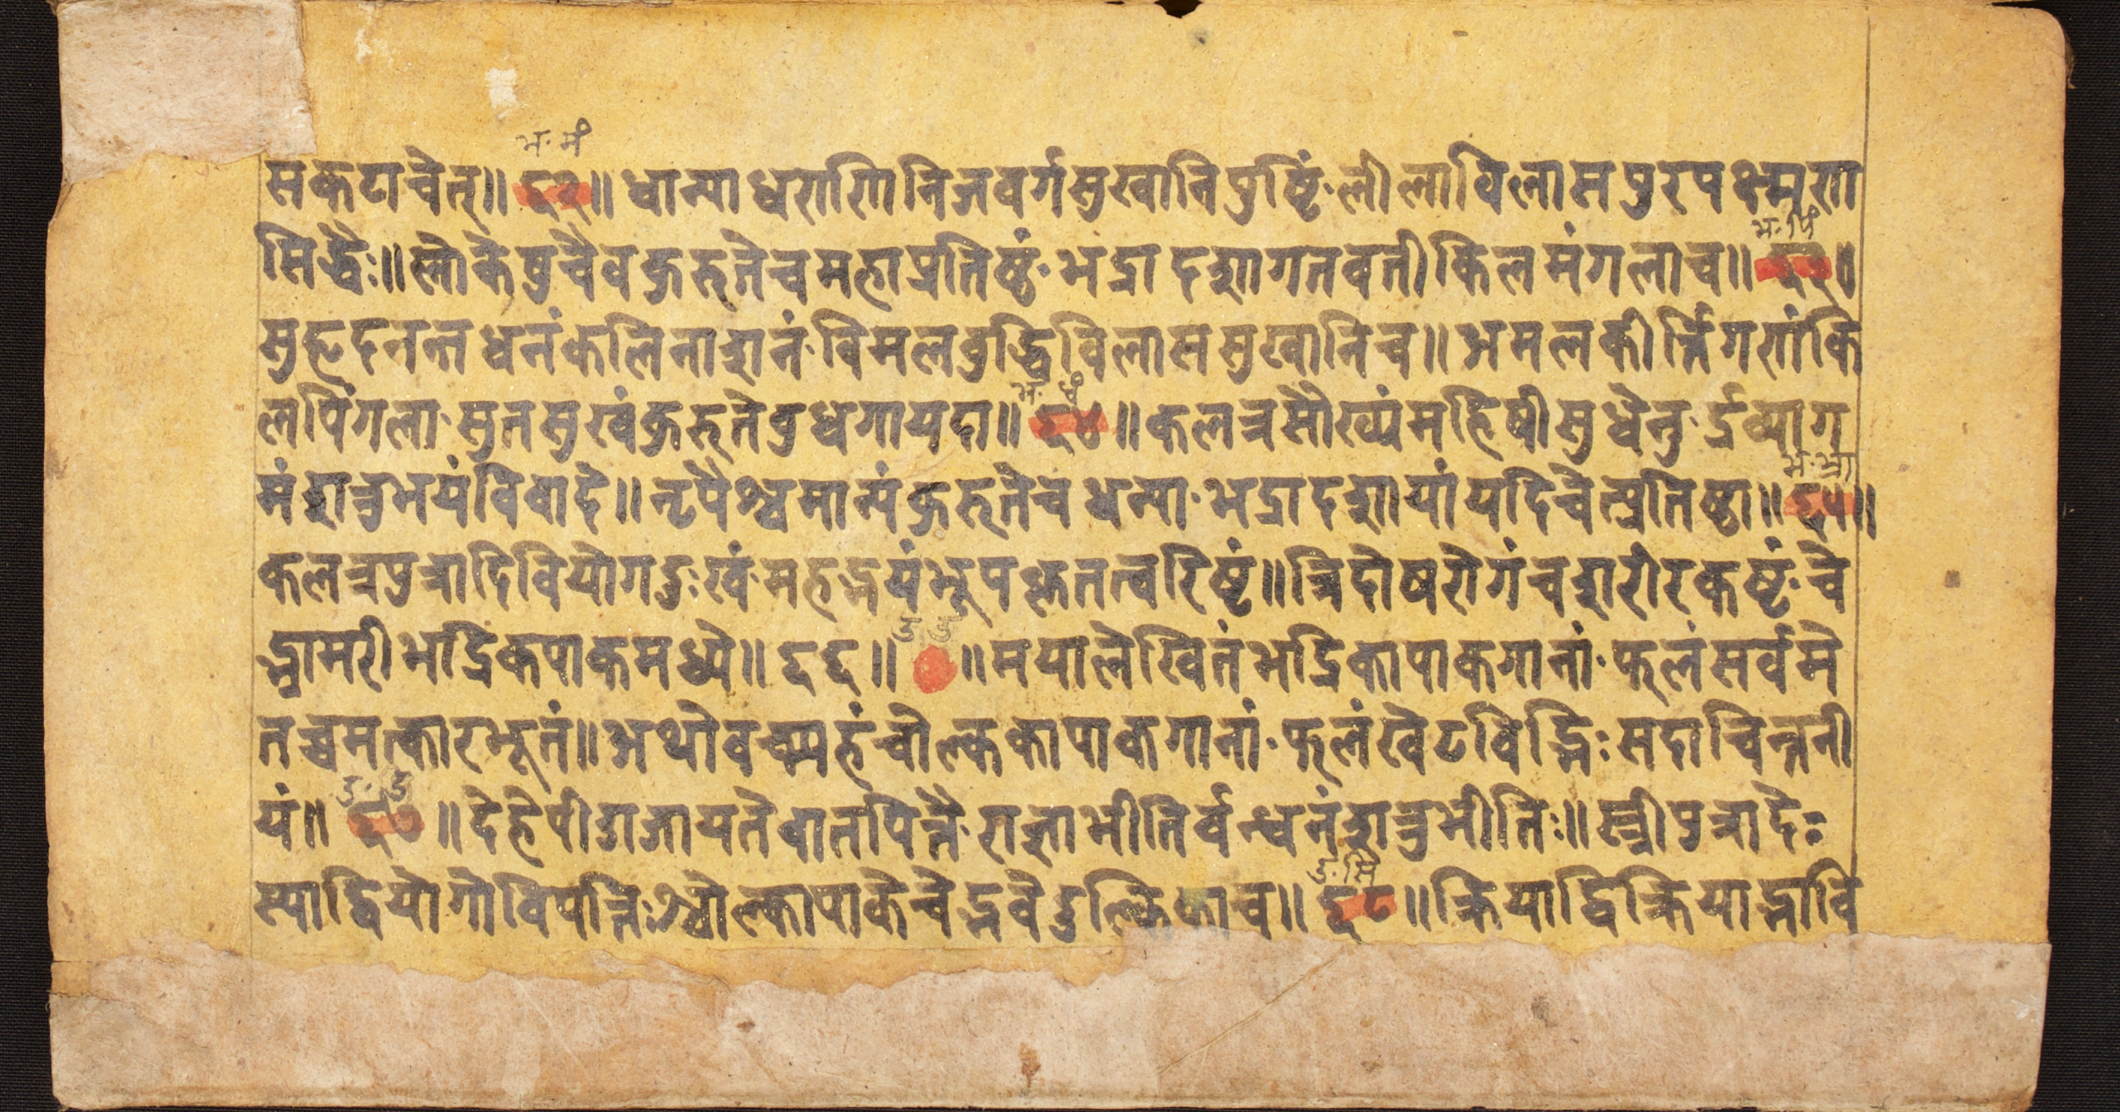 भ॰ मं
सकटाचेत्॥ ६२॥ धान्याधराणि निजवर्गसुखानिपुष्टिं॰लीलाविलासपुरपक्ष्मगणा
भ॰ पिं
सिद्धैः॥ लोकेषुचैवकुरुतेचमहाप्रतिष्ठं॰भद्रादशागतवतीकिलमंगलाच॥ ६३॥
सुहृदनन्तधनंकलिनाशनं॰विमलवुद्धिविलाससुखानिच॥ अमलकीर्त्तिगणंकि
भ॰ ध
लपिंगला॰सुतसुखंकुरुतेवुधगायदा॥ ६४॥ कलत्रसौख्यंमहिषीसुधेनु॰र्द्रव्याग
भ॰ भ्रा
मंशत्रुभयंविवादे॥ नृपैश्चमान्यंकुरुतेचधन्या॰भद्रादशायांयदिचेत्प्रतिष्ठा॥ ६५॥
कलत्रपुत्रादिवियोगदुःखं॰महद्भयंभूपकृतत्वरिष्टं॥ त्रिदोषरोगंचशरीरकष्टं॰चे
द्भ्रामरीभद्रिकपाकमध्ये॥ ६६॥ ॥ मयालेखितंभद्रिकापाकगानां॰फलंसर्वमे
तच्चमत्कारभूतं॥ अथोवच्म्यहंचोल्ककापाकगानां॰फलंखेटविद्भिःसदाचिन्तनी
उ॰ उ
यं॥ ६७ ॥ देहेपीडाजायतेवातपित्तै॰राज्ञाभीतिर्वन्धनंशत्रुभीतिः॥ स्त्रीपुत्रादेः
उ॰ सि
स्याद्वियोगोविपत्तिःश्चोल्कापाकेचेद्भवेदुल्किकाच॥ ६८ ॥ क्रियाद्विक्रियाद्भावि